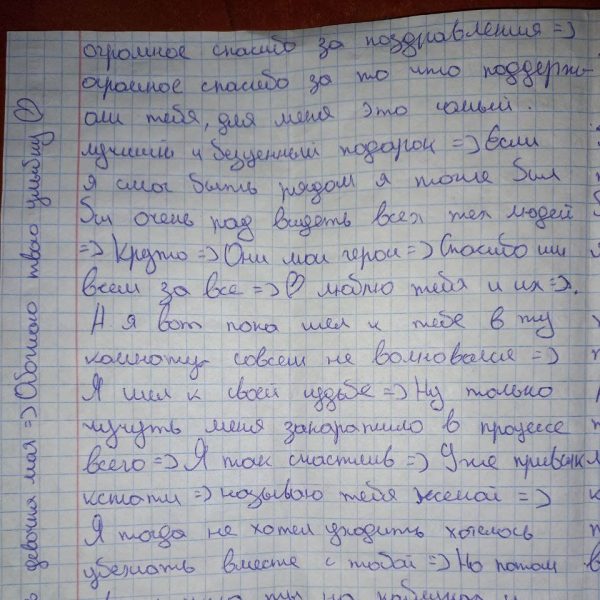 огромное спасибо за поздравления =)
огромное спасибо за то что поддерж-
али тебя, для меня это самый
лучший и безценный подарок =) Если
я смог быть рядом я тоже был
бы очень рад видеть всех тех людей
=) Круто =) Они мои герои =) Спасибо им
всем за все =) ♡ люблю тебя и их =).
А я вот пока шел к тебе в ту
комнату совсем не волновался =)
Я шел к своей судьбе =) Ну только
чучуть меня закоратило в процессе
всего =) Я так счастлив =) Уже привык
кстати =) называю тебя женой =)
Я тогда не хотел уходить хотелось
убежать вместе с тобой =) Но потом
девочка моя =) Обожаю твою улыбку ♡